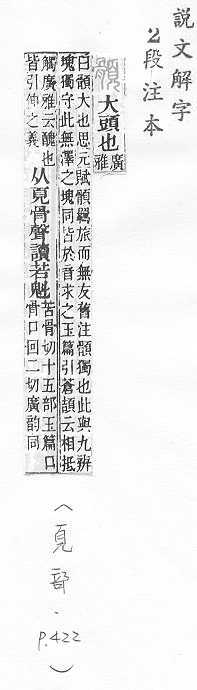 說文解字
2段注本
顝
大頭也
廣
雅
曰顝大也思元賦顝羈旅而無友舊注顝獨也此與九辨
塊獨守此無澤之塊同皆於音求之玉篇引蒼頡云相抵
觸廣雅云醜也
皆引伸之義
从頁骨聲讀若魁
苦骨切十五部玉篇口
骨口回二切廣韵同
(頁部.
P.422)